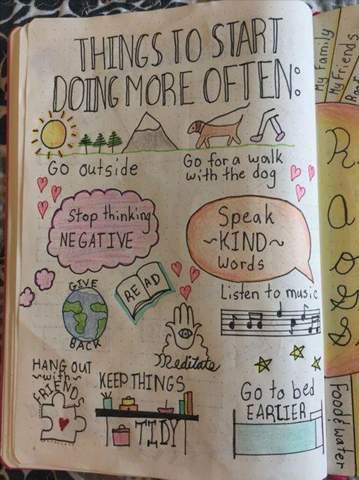 THINGS TO START
DOING MORE OFTEN:
Go outside
Go for a walk
with the dog
Stop thinking
NEGATIVE
Speak
~KIND~
Words
GIVE
BACK
READ
Listen to music
Meditate
HANG OUT
~with~
FRIENDS
KEEP THINGS
TIDY
Go to bed
EARLIER
My Family
My Friends
Food & water